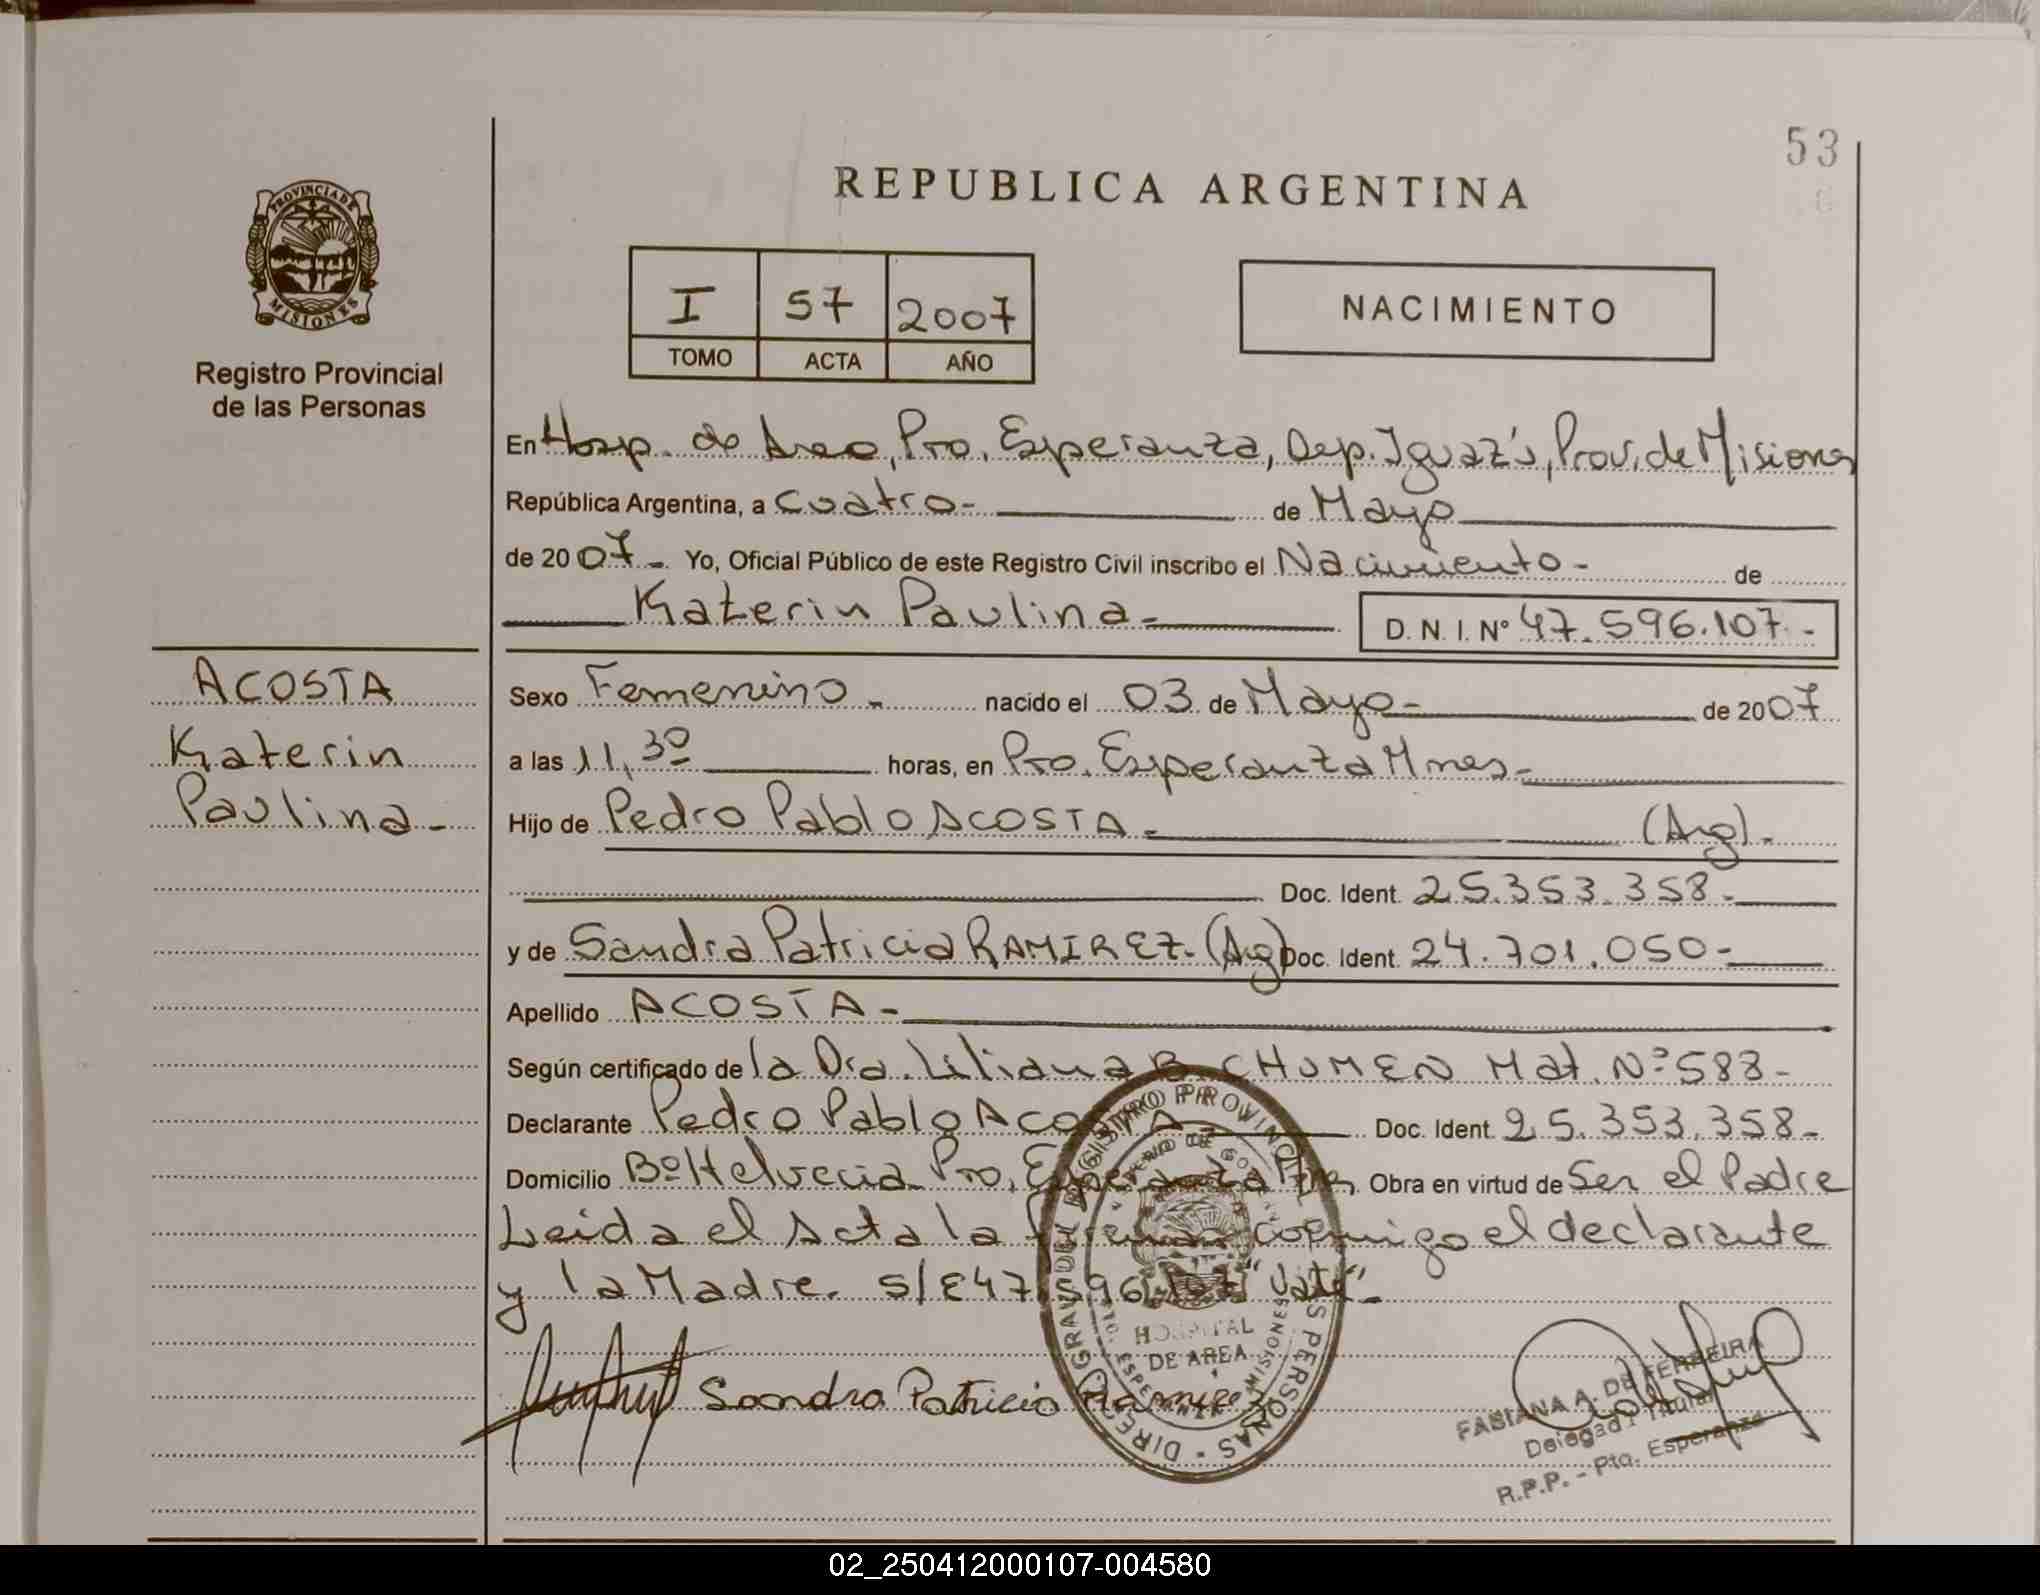 53
REPUBLICA ARGENTINA
PROVINCIA DE
MISIONES
Registro Provincial
de las Personas
I 57 2007
TOMO ACTA AÑO
NACIMIENTO
En Hosp. de Area, Pto. Esperanza, Dep. Iguazú, Prov. de Misiones
República Argentina, a cuatro- de Mayo
de 2007-. Yo, Oficial Público de este Registro Civil inscribo el Nacimiento- de
Katerin Paulina- D. N. I. Nº 47.596.107.-
ACOSTA
Katerin
Paulina-
Sexo Femenino- nacido el 03 de Mayo- de 2007
a las 11,30 horas, en Pto. Esperanza Mnes-
Hijo de Pedro Pablo ACOSTA- (Arg).-
Doc. Ident. 25.353.358-
y de Sandra Patricia RAMIREZ-(Arg) Doc. Ident. 24.701.050-
Apellido ACOSTA-
Según certificado de la Dra. Liliana B. CHUMEN Mat. Nº 583-
Declarante Pedro Pablo ACOSTA- Doc. Ident. 25.353.358-
Domicilio Bº Helvecia Pto. Esperanza Obra en virtud de Ser el Padre
Leida el Acta la firman conmigo el declarante
y la Madre. S/E 47.596.107 "Vale"-
HOSPITAL
DE AREA
Sandra Patricia Ramirez
FABIANA A. DE FERREIRA
Delegada Titular
R.P.P. - Pto. Esperanza
02_250412000107-004580